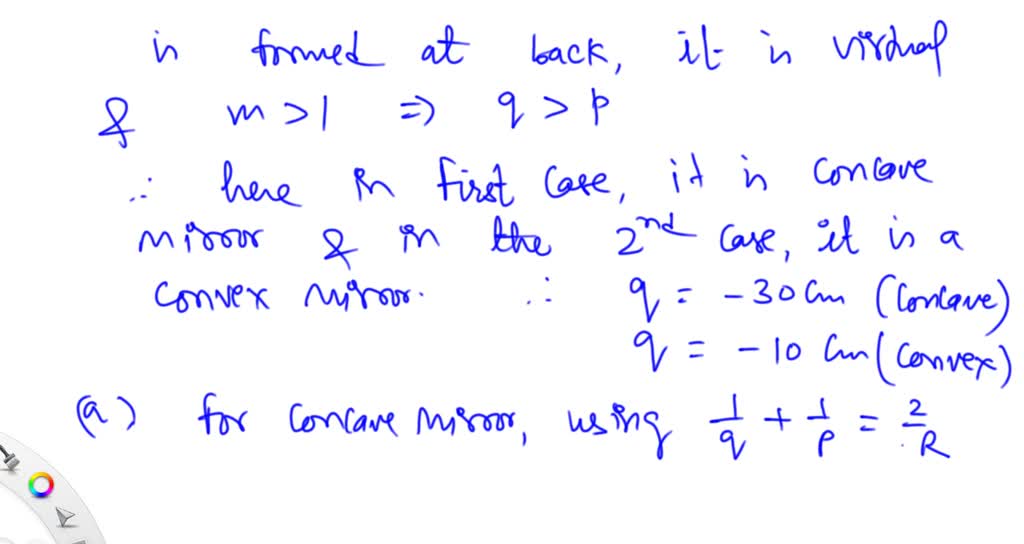 is formed at back, it is virtual
& m > 1 ⇒ q > p
∴ here in first case, it is concave
mirror & in the 2nd case, it is a
convex mirror. ∴ q = -30 cm (concave)
q = -10 cm (convex)
(a) for concave mirror, using 1/q + 1/p = 2/R